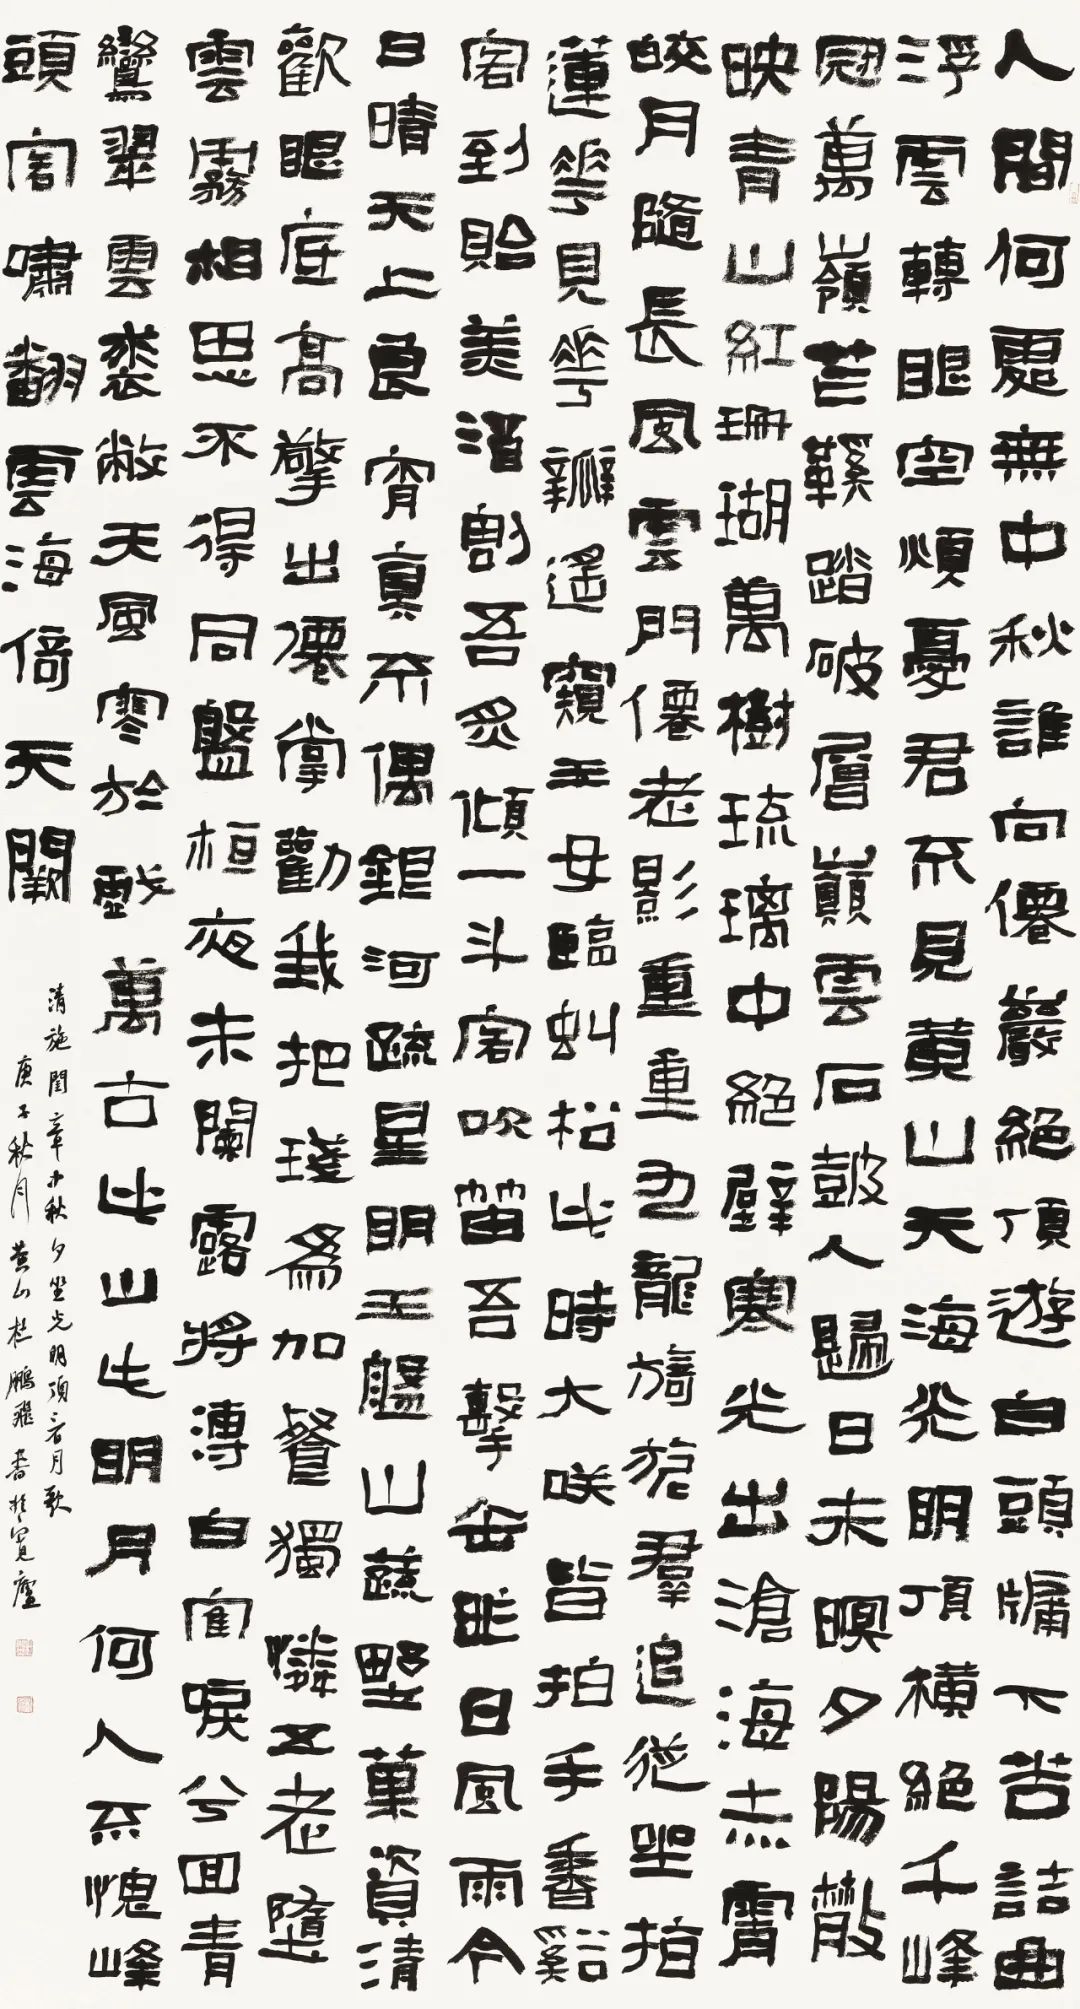 人間何處無中秋誰向僊巖絕頂遊白頭牖下苦詰曲
浮雲轉眼空煩憂君不見黃山天海光明頂橫絕千峰
冠萬嶺芒鞵踏破層巔雲石鼓人歸日未暝夕陽散
映青山紅珊瑚萬樹琉璃中絕壁寒光出滄海赤霄
皎月隨長風雲門僊老影重重九龍旖旎羣追從坐指
蓮華見華瓣遙窺玉母臨虯松此時大咲皆拍手香谿
客到貽美酒割吾炙傾一斗客吹笛吾擊缶昨日風雨今
日晴天上良宵真不偶銀河疏星明玉盤山蔬野菓資清
歡眼底高擎出僊掌勸我把琖爲加餐獨憐五老墮
雲霧相思不得同盤桓夜未闌露將漙白寉唳兮回青
鸞翠雲裘敝天風寒於戲萬古此山此明月何人不愧峰
頭客嘯翻雲海倚天闕
清施閏章中秋夕坐光明頂看月歌
庚子秋月黃山杜鵬飛書於寬廬